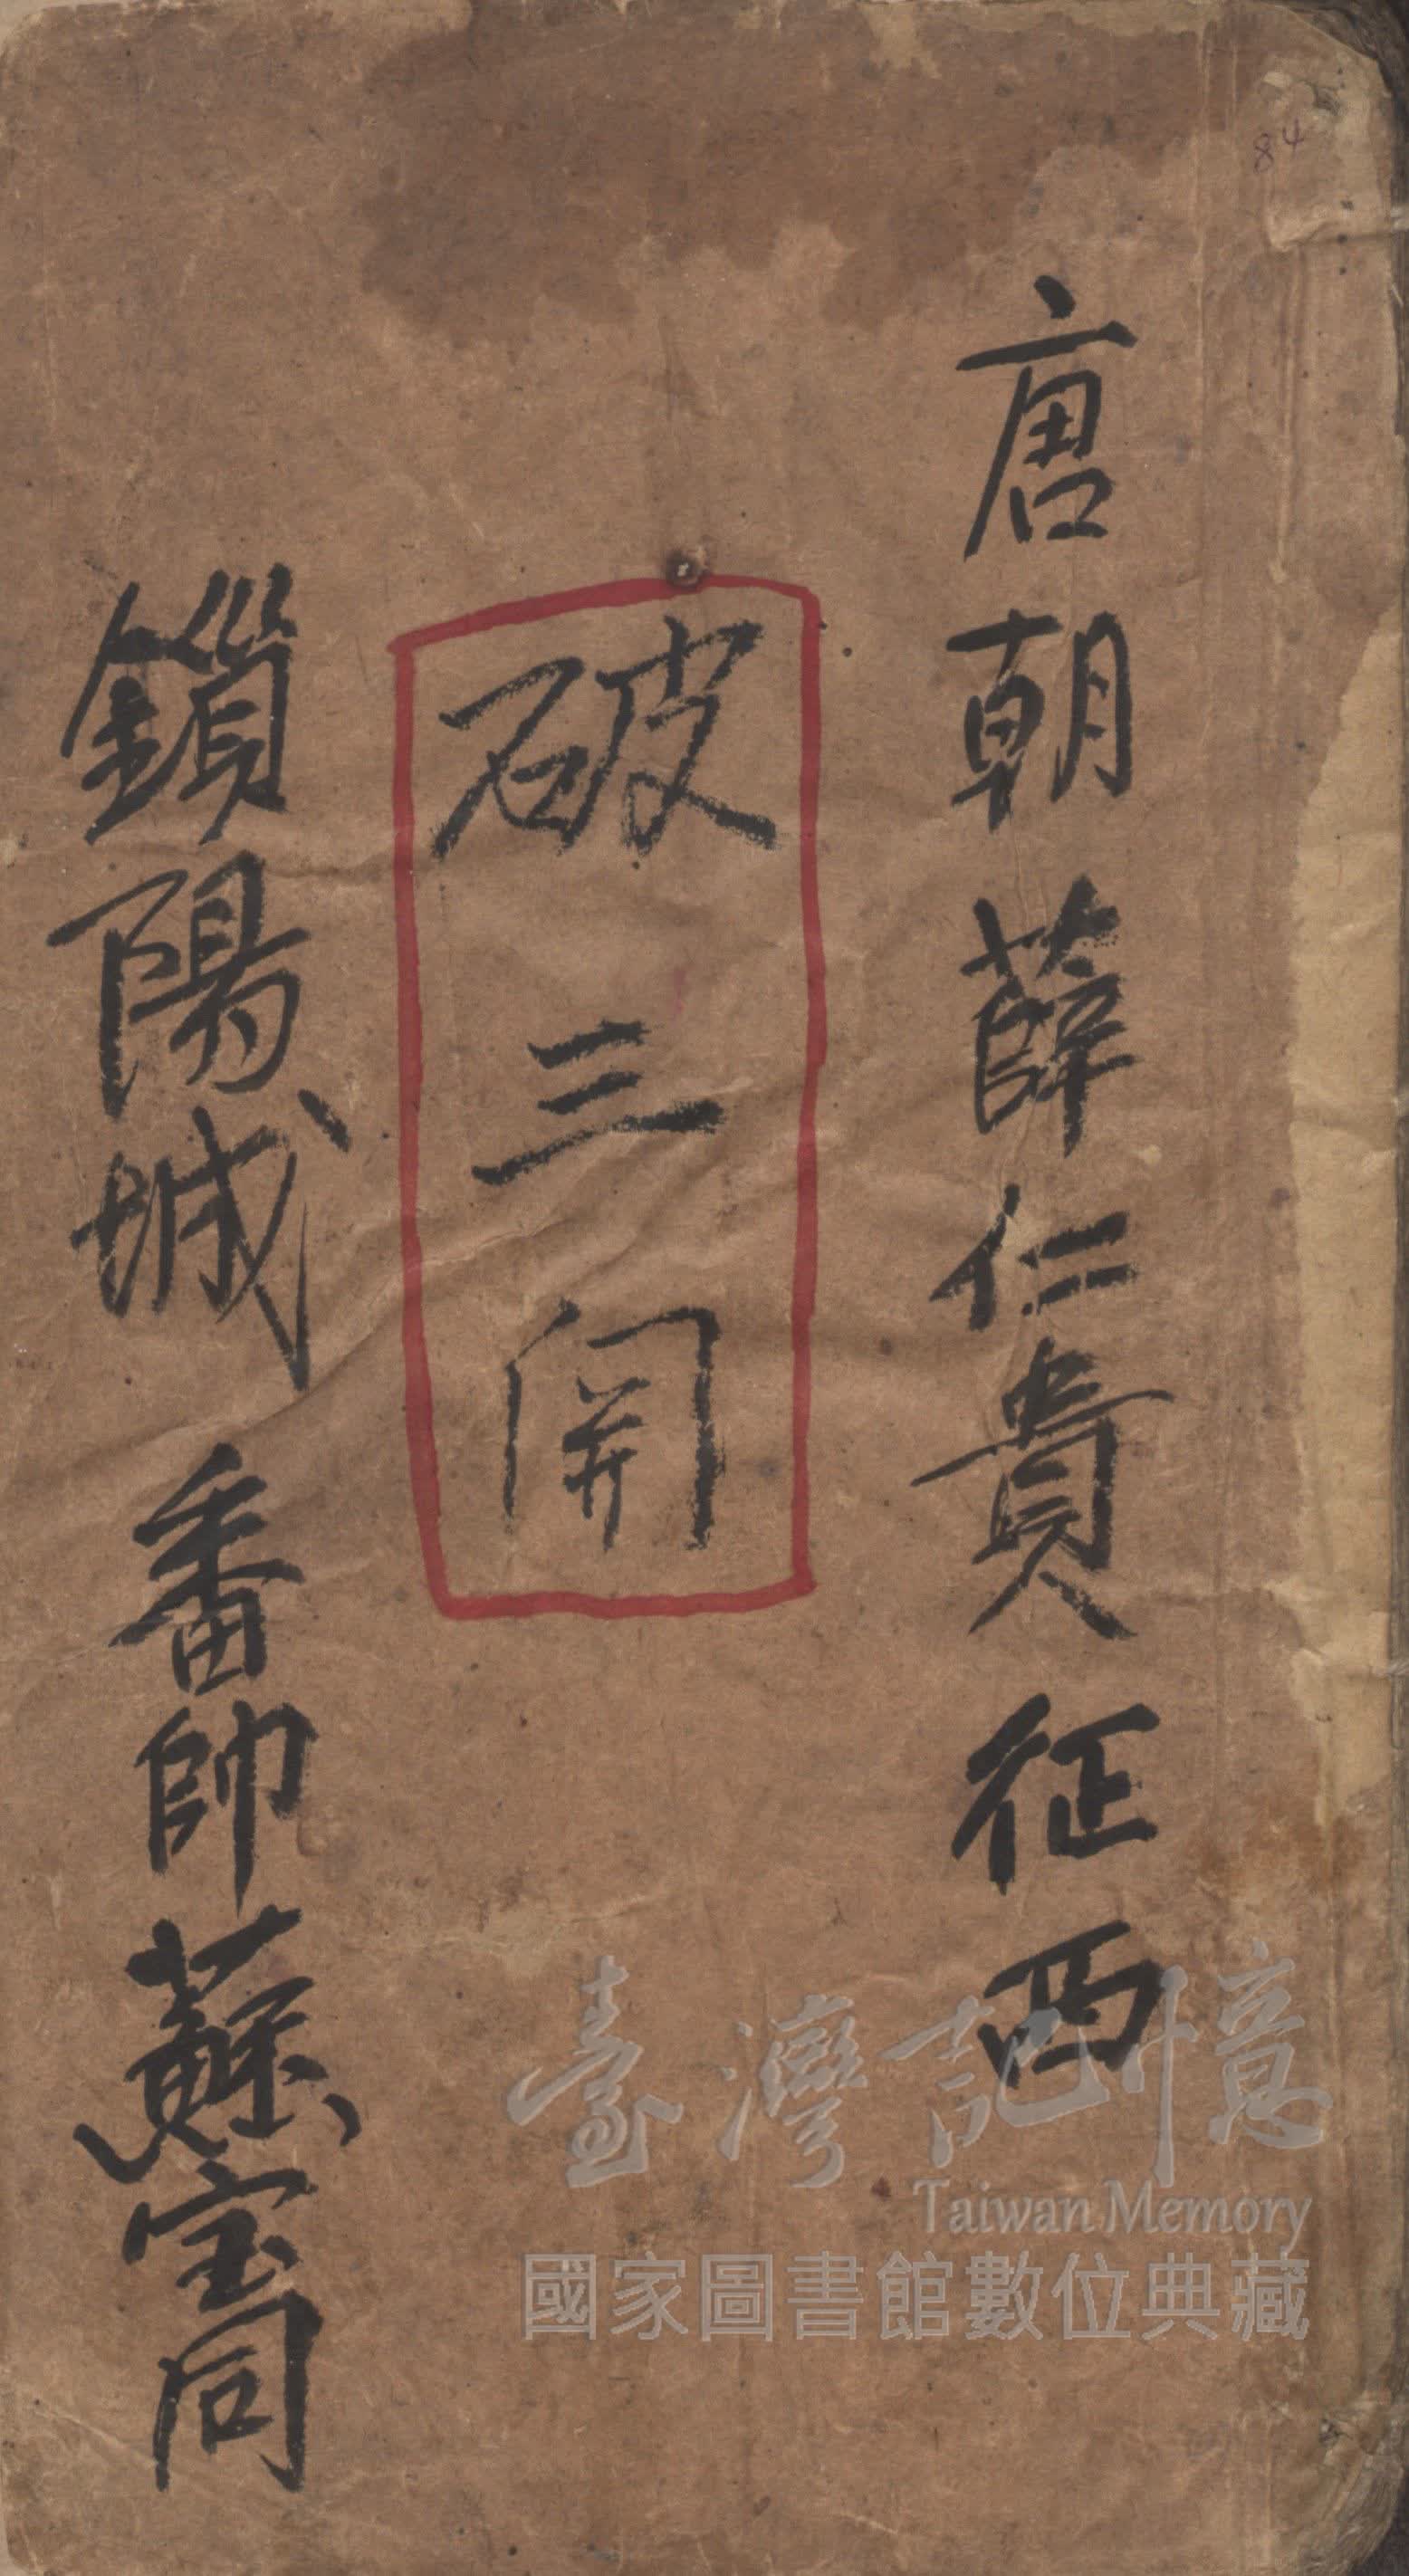 84
唐朝薛仁貴征西
破三関
鎖陽城 番帥蘇宝同
臺灣記憶
Taiwan Memory
國家圖書館數位典藏